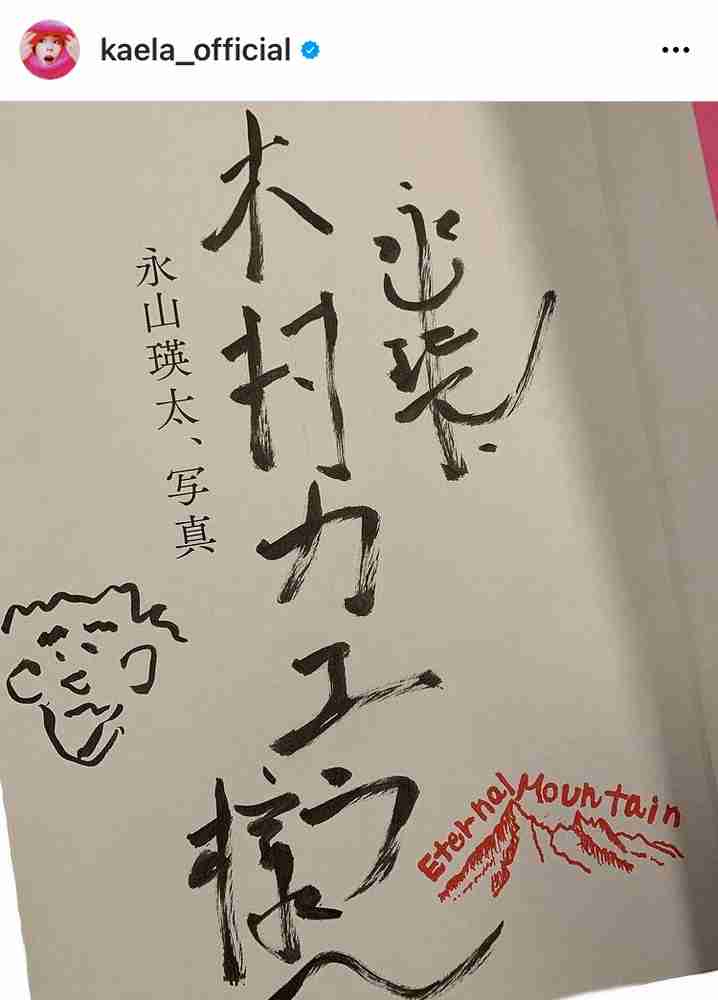 kaela_official
木村カエラ様
永山瑛太、写真
Eternal Mountain